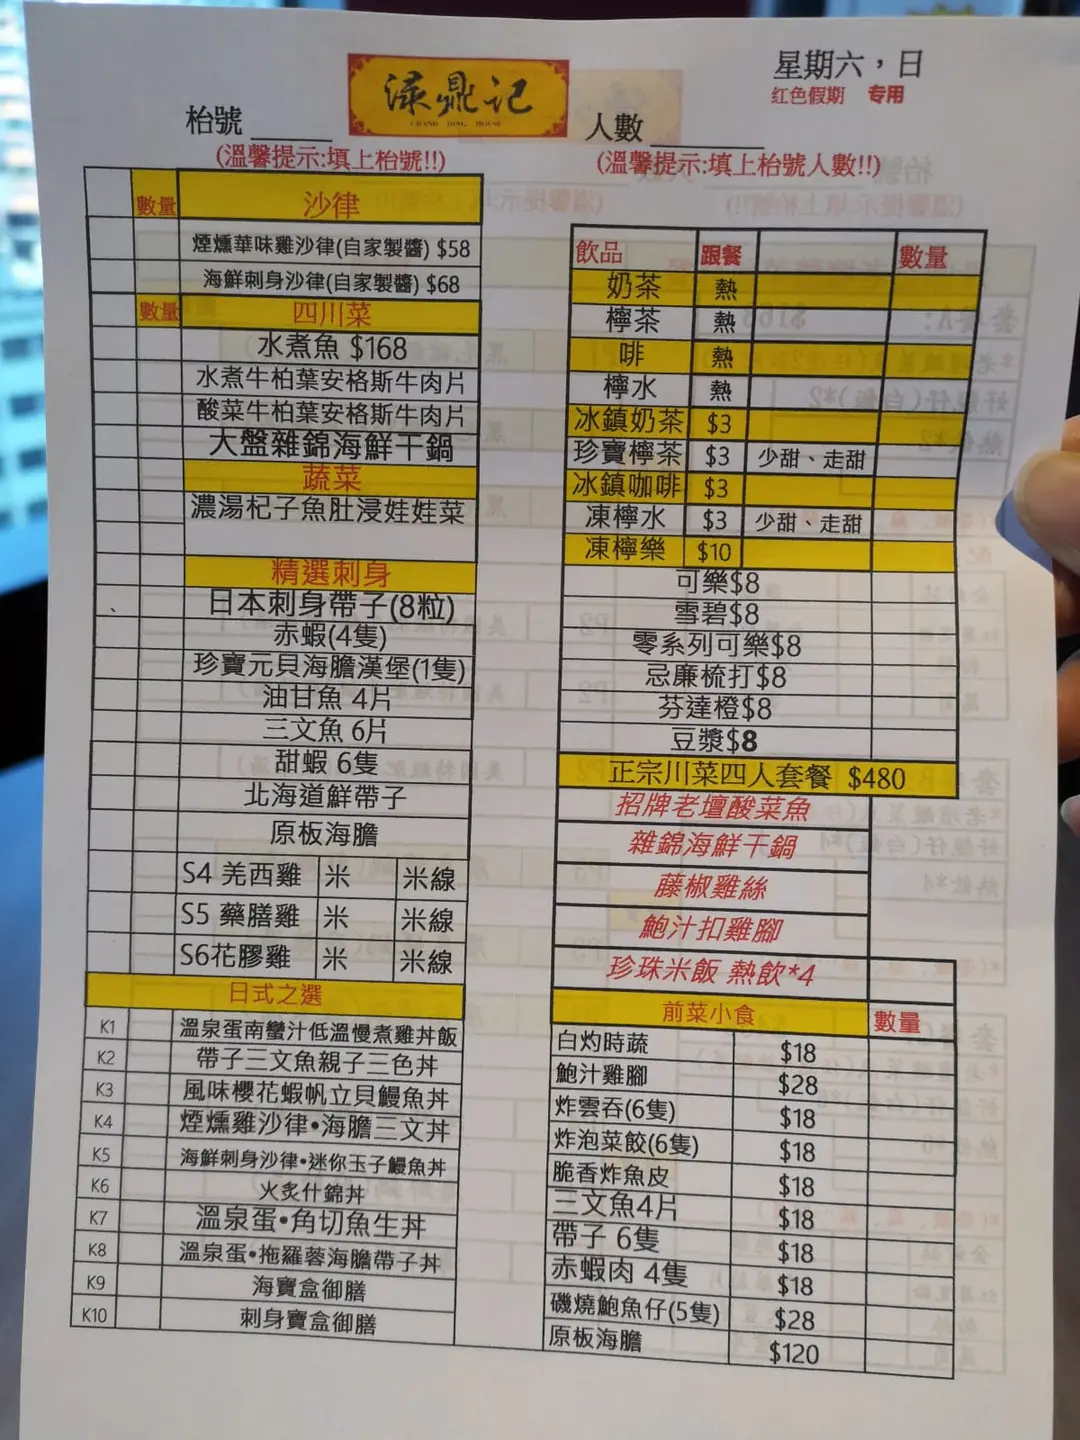 星期六，日
红色假期 专用
渌鼎记
GRAND DING HOUSE
枱號
人數
(溫馨提示:填上枱號!!)
(溫馨提示:填上枱號人數!!)
數量 沙律
煙燻華味雞沙律(自家製醬) $58
海鮮刺身沙律(自家製醬) $68
數量 四川菜
水煮魚 $168
水煮牛柏葉安格斯牛肉片
酸菜牛柏葉安格斯牛肉片
大盤雜錦海鮮干鍋
蔬菜
濃湯杞子魚肚浸娃娃菜
精選刺身
日本刺身帶子(8粒)
赤蝦(4隻)
珍寶元貝海膽漢堡(1隻)
油甘魚 4片
三文魚 6片
甜蝦 6隻
北海道鮮帶子
原板海膽
S4 羌西雞 米 米線
S5 藥膳雞 米 米線
S6花膠雞 米 米線
日式之選
K1 溫泉蛋南蠻汁低溫慢煮雞丼飯
K2 帶子三文魚親子三色丼
K3 風味櫻花蝦帆立貝鰻魚丼
K4 煙燻雞沙律•海膽三文丼
K5 海鮮刺身沙律•迷你玉子鰻魚丼
K6 火炙什錦丼
K7 溫泉蛋•角切魚生丼
K8 溫泉蛋•拖羅蓉海膽帶子丼
K9 海寶盒御膳
K10 刺身寶盒御膳
飲品 跟餐 數量
奶茶 熱
檸茶 熱
啡 熱
檸水 熱
冰鎮奶茶 $3
珍寶檸茶 $3 少甜、走甜
冰鎮咖啡 $3
凍檸水 $3 少甜、走甜
凍檸樂 $10
可樂$8
雪碧$8
零系列可樂$8
忌廉梳打$8
芬達橙$8
豆漿$8
正宗川菜四人套餐 $480
招牌老壇酸菜魚
雜錦海鮮干鍋
藤椒雞絲
鮑汁扣雞腳
珍珠米飯 熱飲*4
前菜小食 數量
白灼時蔬 $18
鮑汁雞腳 $28
炸雲吞(6隻) $18
炸泡菜餃(6隻) $18
脆香炸魚皮 $18
三文魚4片 $18
帶子 6隻 $18
赤蝦肉 4隻 $18
磯燒鮑魚仔(5隻) $28
原板海膽 $120